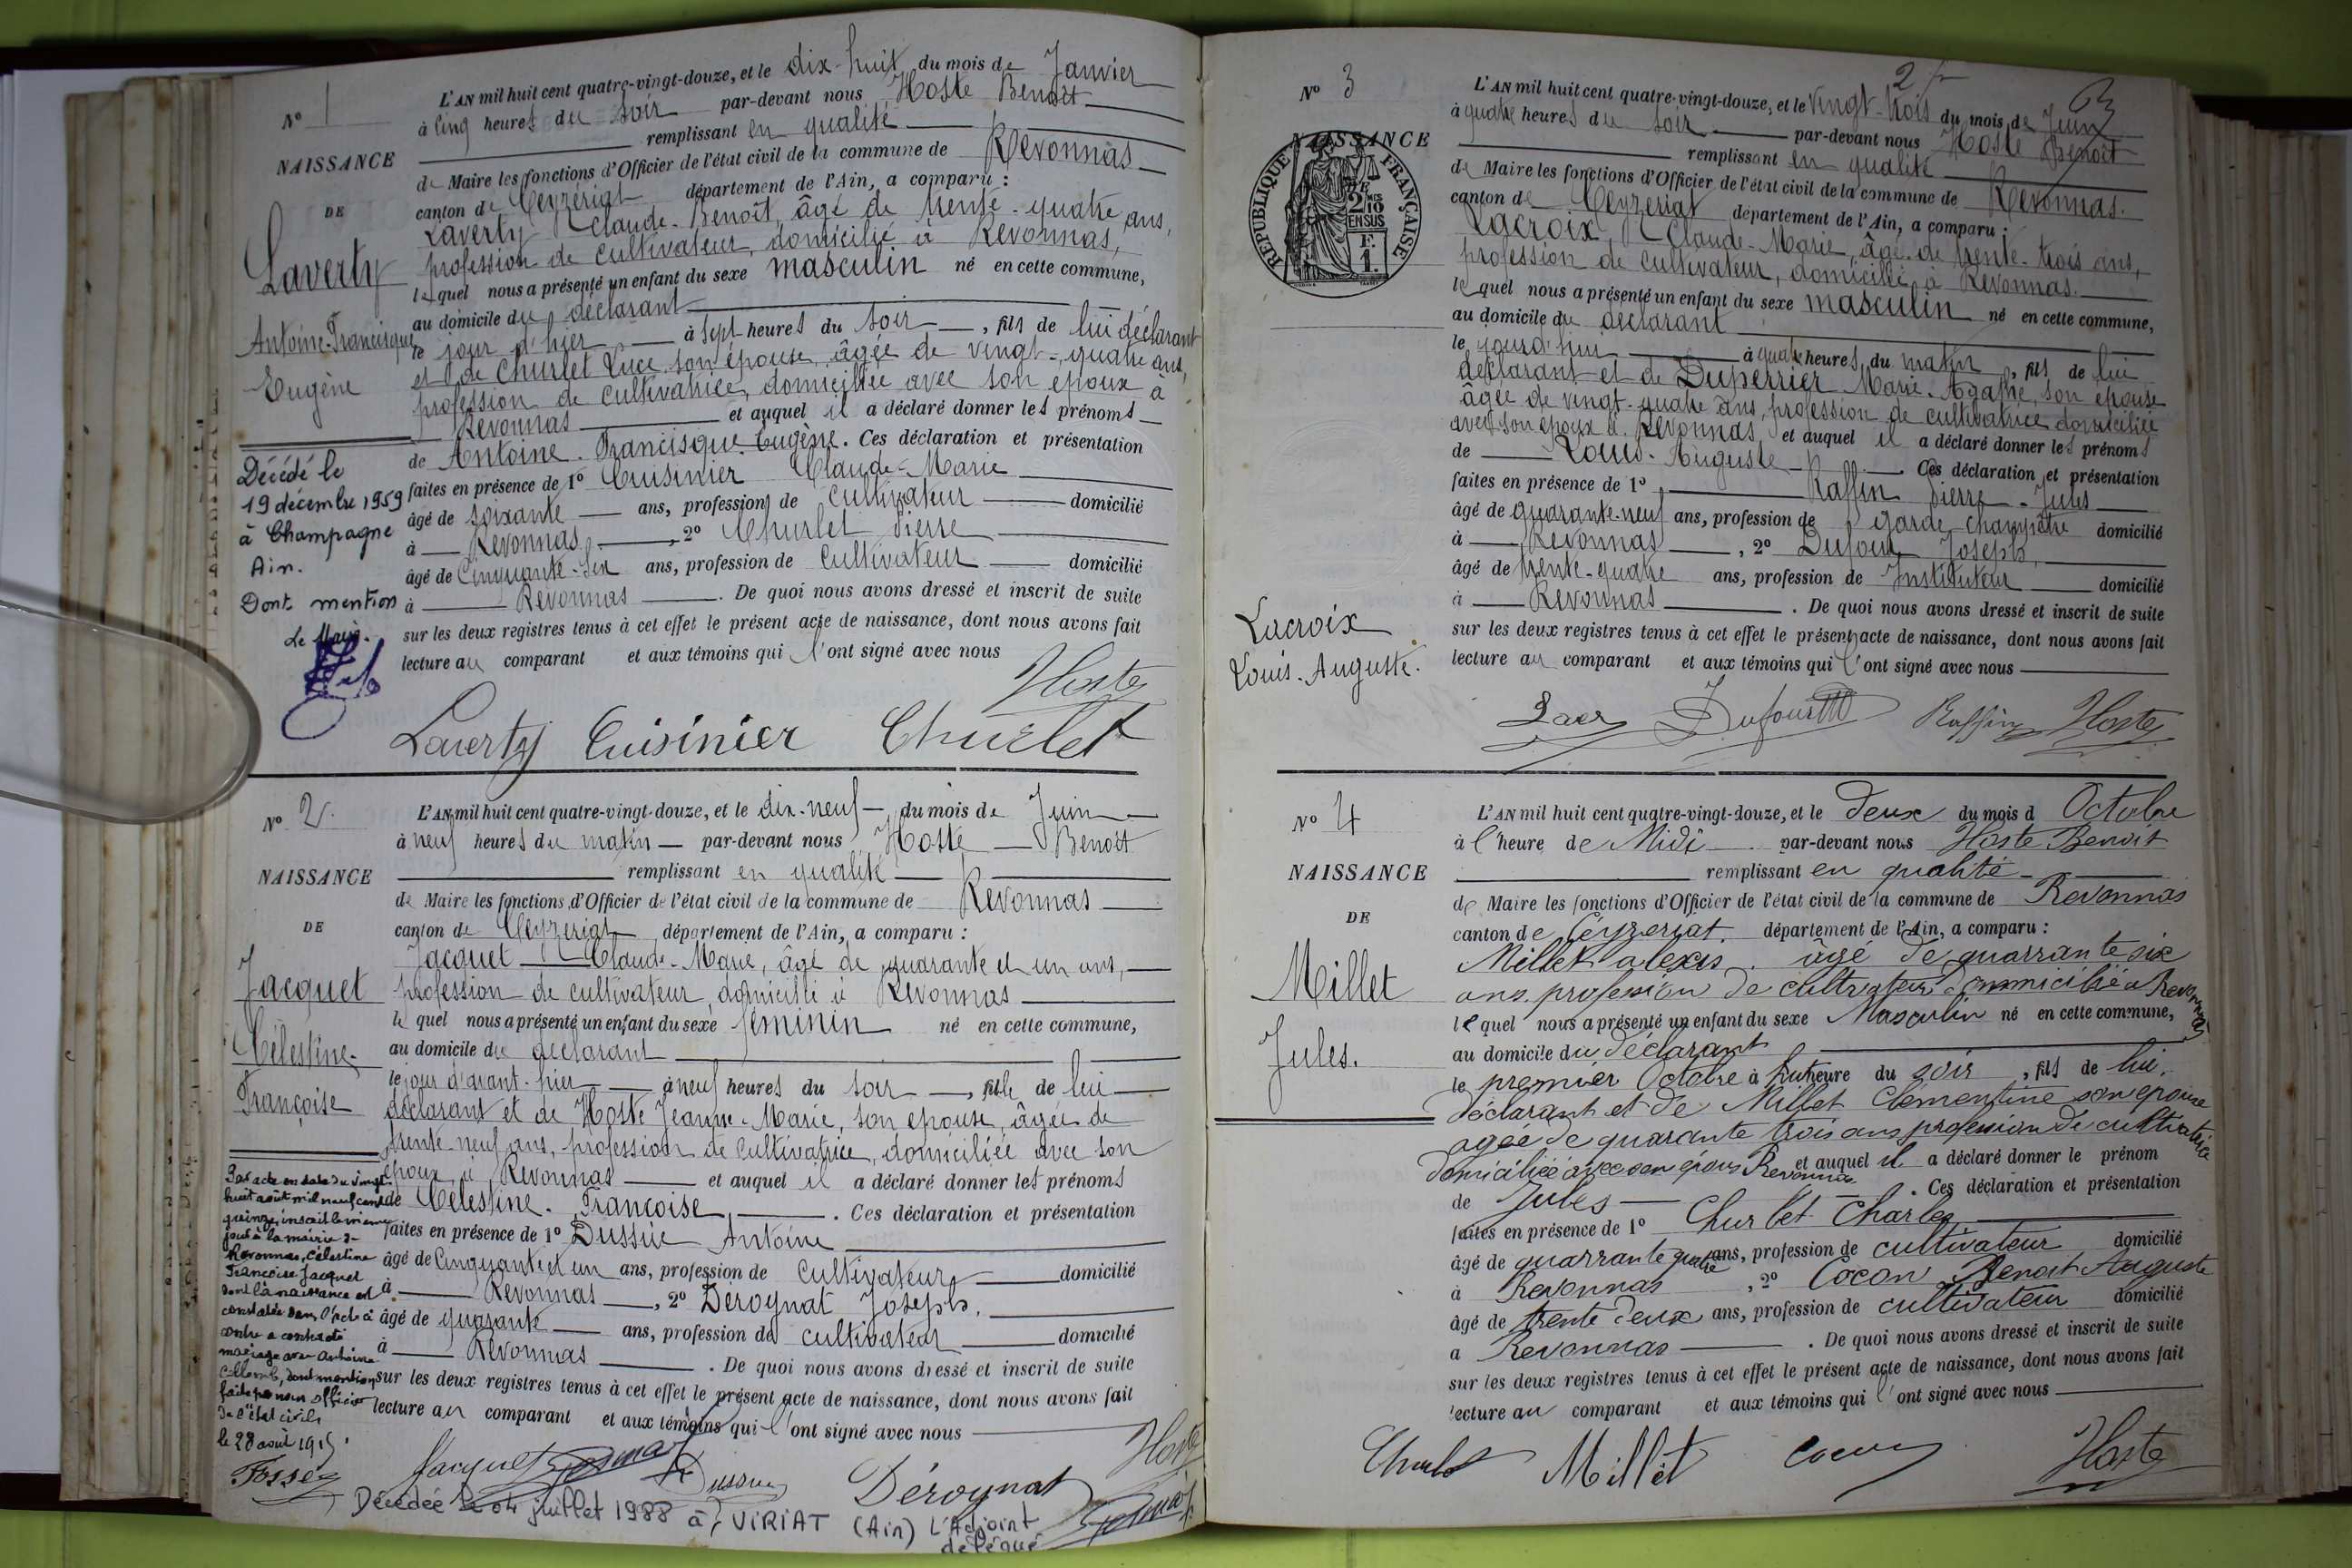 N° 1
NAISSANCE
DE
Laverty
Antoine-Francisque
Eugène
Décédé le
19 décembre 1959
à Champagne
Ain.
Dont mention
Le Maire.
L'AN mil huit cent quatre-vingt-douze, et le dix-huit du mois de Janvier
à cinq heures du soir par-devant nous Hoste Benoît
remplissant en qualité
de Maire les fonctions d'Officier de l'état civil de la commune de Revonnas
canton de Ceyzériat département de l'Ain, a comparu :
Laverty Claude-Benoît, âgé de trente-quatre ans,
profession de cultivateur, domicilié à Revonnas,
lequel nous a présenté un enfant du sexe masculin né en cette commune,
au domicile du déclarant
le jour d'hier à sept heures du soir, fils de lui déclarant
et de Churlet Luce son épouse, âgée de vingt-quatre ans,
profession de cultivatrice, domiciliée avec son époux à
Revonnas et auquel il a déclaré donner les prénoms
de Antoine-Francisque-Eugène. Ces déclaration et présentation
faites en présence de 1° Cuisinier Claude-Marie
âgé de soixante ans, profession de cultivateur domicilié
à Revonnas, 2° Churlet Pierre
âgé de cinquante-six ans, profession de cultivateur domicilié
à Revonnas. De quoi nous avons dressé et inscrit de suite
sur les deux registres tenus à cet effet le présent acte de naissance, dont nous avons fait
lecture au comparant et aux témoins qui l'ont signé avec nous
Hoste
Laverty Cuisinier Churlet
N° 2.
NAISSANCE
DE
Jacquet
Célestine-
Françoise
Par acte en date du vingt-
huit août mil neuf cent
quinze, inscrit le même
jour à la mairie de
Revonnas, Célestine
Françoise Jacquet
dont la naissance est
constatée dans l'acte ci
contre a contracté
mariage avec Antoine
dont mention
faite par nous officier
de l'état civil
le 28 août 1915.
Fossé
L'AN mil huit cent quatre-vingt-douze, et le dix-neuf du mois de Juin
à neuf heures du matin par-devant nous Hoste Benoît
remplissant en qualité
de Maire les fonctions d'Officier de l'état civil de la commune de Revonnas
canton de Ceyzeriat département de l'Ain, a comparu :
Jacquet Claude-Marie, âgé de quarante et un ans,
profession de cultivateur, domicilié à Revonnas
lequel nous a présenté un enfant du sexe féminin né en cette commune,
au domicile du déclarant
le jour d'avant-hier à neuf heures du soir, fille de lui
déclarant et de Hoste Jeanne-Marie, son épouse, âgée de
trente-neuf ans, profession de cultivatrice, domiciliée avec son
époux à Revonnas et auquel il a déclaré donner les prénoms
de Célestine-Françoise. Ces déclaration et présentation
faites en présence de 1° Dussüe Antoine
âgé de cinquante et un ans, profession de cultivateur domicilié
à Revonnas, 2° Deroynat Joseph.
âgé de quarante ans, profession de cultivateur domicilié
à Revonnas. De quoi nous avons dressé et inscrit de suite
sur les deux registres tenus à cet effet le présent acte de naissance, dont nous avons fait
lecture au comparant et aux témoins qui l'ont signé avec nous
Jacquet Déroynat Hoste
Décédée le 04 juillet 1988 à VIRIAT (Ain) L'Adjoint
délégué
2
N° 3
NAISSANCE
REPUBLIQUE FRANÇAISE
2/10 EN SUS
F. 1.
Lacroix
Louis-Auguste.
L'AN mil huit cent quatre-vingt-douze, et le vingt-trois du mois de Juin
à quatre heures du soir par-devant nous Hoste Benoît
remplissant en qualité
de Maire les fonctions d'Officier de l'état civil de la commune de Revonnas.
canton de Ceyzeriat département de l'Ain, a comparu :
Lacroix Claude-Marie, âgé de trente-trois ans,
profession de cultivateur, domicilié à Revonnas.
lequel nous a présenté un enfant du sexe masculin né en cette commune,
au domicile du déclarant
le jourd'hui à quatre heures du matin, fils de lui
déclarant et de Duperrier Marie-Agathe, son épouse
âgée de vingt-quatre ans, profession de cultivatrice domiciliée
avec son époux à Revonnas et auquel il a déclaré donner les prénoms
de Louis-Auguste. Ces déclaration et présentation
faites en présence de 1° Raffin Pierre-Jules
âgé de quarante-neuf ans, profession de garde champêtre domicilié
à Revonnas, 2° Dufour Joseph,
âgé de trente-quatre ans, profession de Instituteur domicilié
à Revonnas. De quoi nous avons dressé et inscrit de suite
sur les deux registres tenus à cet effet le présent acte de naissance, dont nous avons fait
lecture au comparant et aux témoins qui l'ont signé avec nous
Dufour Raffin Hoste
N° 4
NAISSANCE
DE
Millet
Jules.
L'AN mil huit cent quatre-vingt-douze, et le deux du mois d Octobre
à l'heure de Midi par-devant nous Hoste Benoit
remplissant en qualité
de Maire les fonctions d'Officier de l'état civil de la commune de Revonnas
canton de Céyzeriat. département de l'Ain, a comparu :
Millet alexis. âgé de quarrante six
ans, profession de cultivateur domicilié a Revonnas
lequel nous a présenté un enfant du sexe Masculin né en cette commune,
au domicile du déclarant
le premier Octobre à huit heure du soir, fils de lui.
déclarant et de Millet Clementine son epouse
agée de quarante trois ans profession de cultivatrice
domiciliée avec son époux Revonnas et auquel il a déclaré donner le prénom
de Jules. Ces déclaration et présentation
faites en présence de 1° Churlet Charles
âgé de quarrante quatre ans, profession de cultivateur domicilié
à Revonnas, 2° Cocon Benoit Auguste
âgé de trente deux ans, profession de cultivateur domicilié
a Revonnas. De quoi nous avons dressé et inscrit de suite
sur les deux registres tenus à cet effet le présent acte de naissance, dont nous avons fait
lecture au comparant et aux témoins qui l'ont signé avec nous
Churlet Millet Cocon Hoste